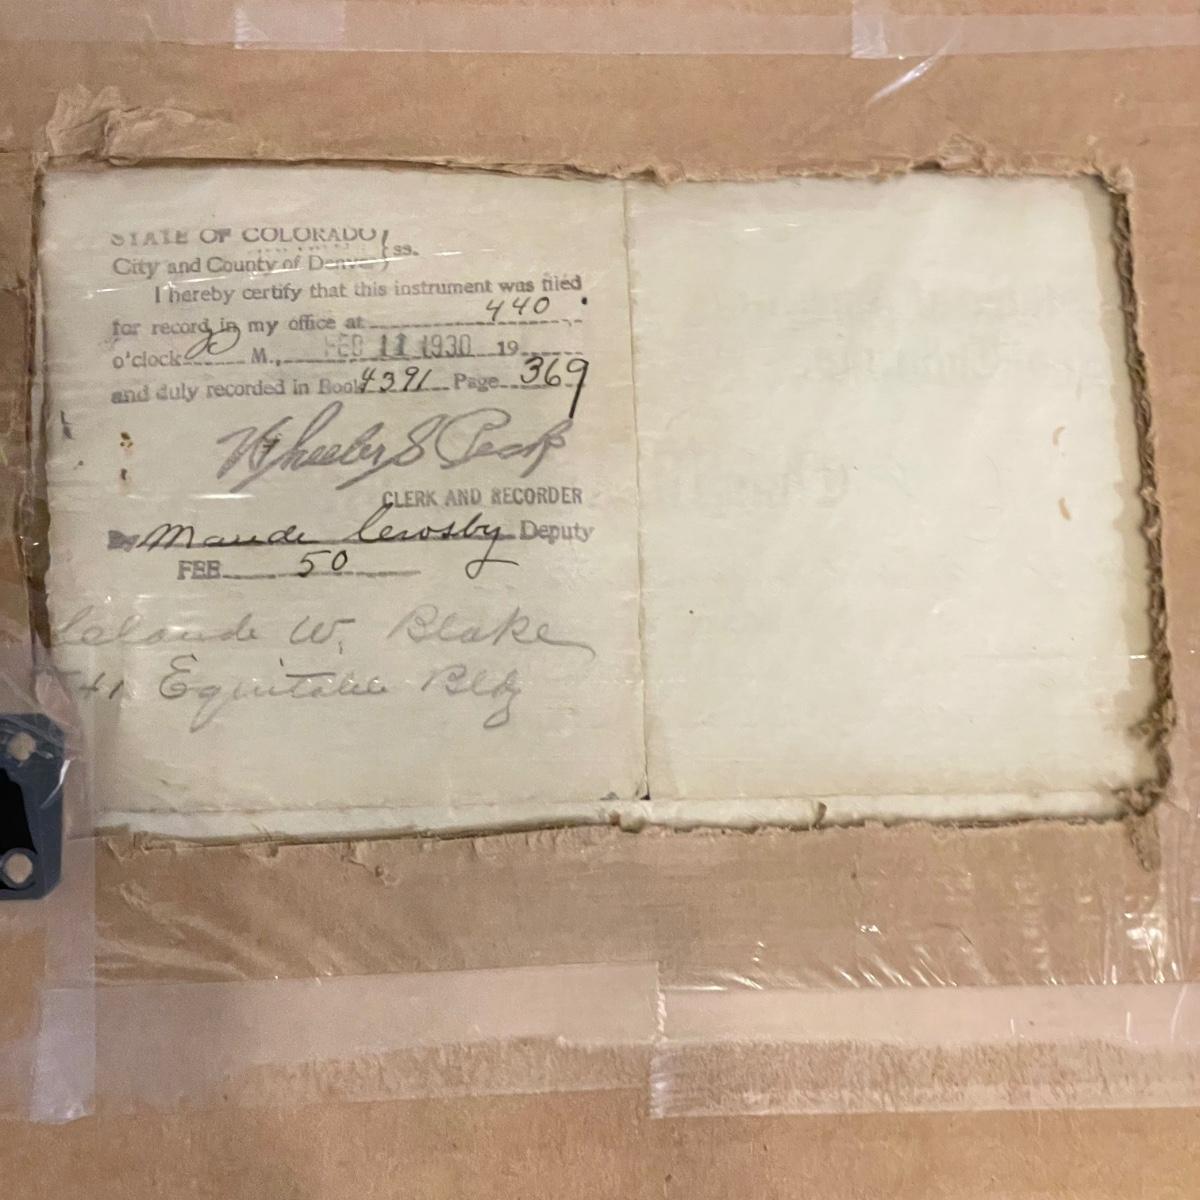 STATE OF COLORADO
City and County of Denver } ss.
I hereby certify that this instrument was filed
for record in my office at 440
o'clock M., FEB 11 1930 19
and duly recorded in Book 4391 Page 369
Wheeler S Peck
CLERK AND RECORDER
By Maude Crosby Deputy
FEE 50
W. Blake
41 Equitable Bldg